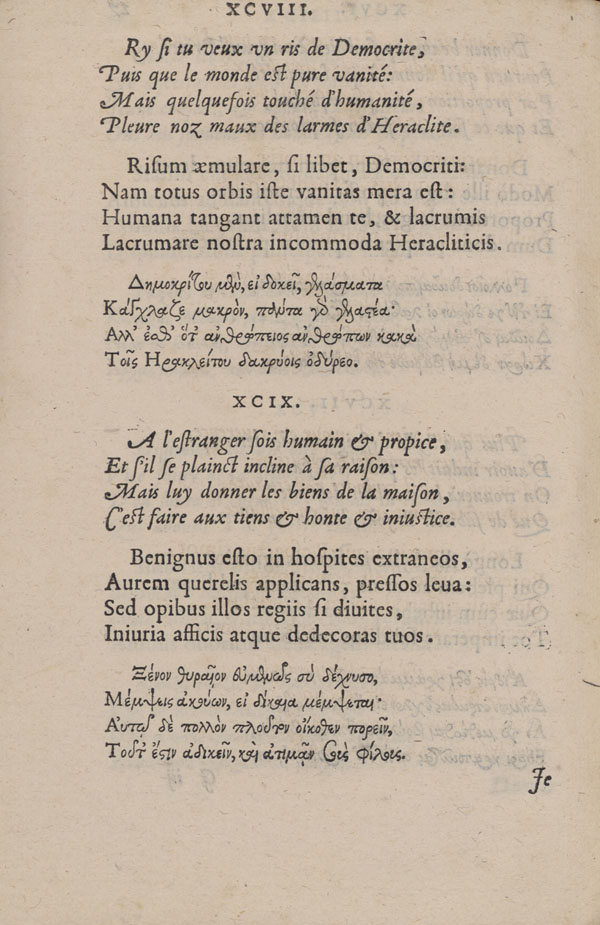 XCVIII.
Ry si tu veux vn ris de Democrite,
Puis que le monde est pure vanité:
Mais quelquefois touché d'humanité,
Pleure noz maux des larmes d'Heraclite.
Risum æmulare, si libet, Democriti:
Nam totus orbis iste vanitas mera est:
Humana tangant attamen te, & lacrumis
Lacrumare nostra incommoda Heracliticis.
Δημοκρίτου μὲν, εἰ δοκεῖ, γελάσματα
Κάγχλαζε μακρὸν, πάντα γὸ γελαστέα·
Ἀλλ' ἐσθ' ὅτ' ἀνθρώπειος ἀνθρώπων κακὰ
Τοῖς Ηρακλείτου δακρύοις ὀδύρεο.
XCIX.
A l'estranger sois humain & propice,
Et s'il se plainct incline à sa raison:
Mais luy donner les biens de la maison,
C'est faire aux tiens & honte & iniustice.
Benignus esto in hospites extraneos,
Aurem querelis applicans, pressos leua:
Sed opibus illos regiis si diuites,
Iniuria afficis atque dedecoras tuos.
Ξένον θυραῖον εὐμενῶς σὺ δέχνυσο,
Μέμψεις ἀκούων, εἰ δίκαια μέμψεται·
Αὐτῷ δὲ πολλὸν πλοῦτον οἴκοθεν πορεῖν,
Τοῦτ' ἔστιν ἀδικεῖν, καὶ ἀτιμᾷν τοὺς φίλοις.
Je